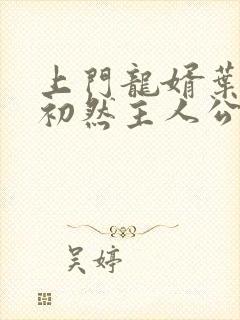 上門龍婿葉
初然主人公
吴婷